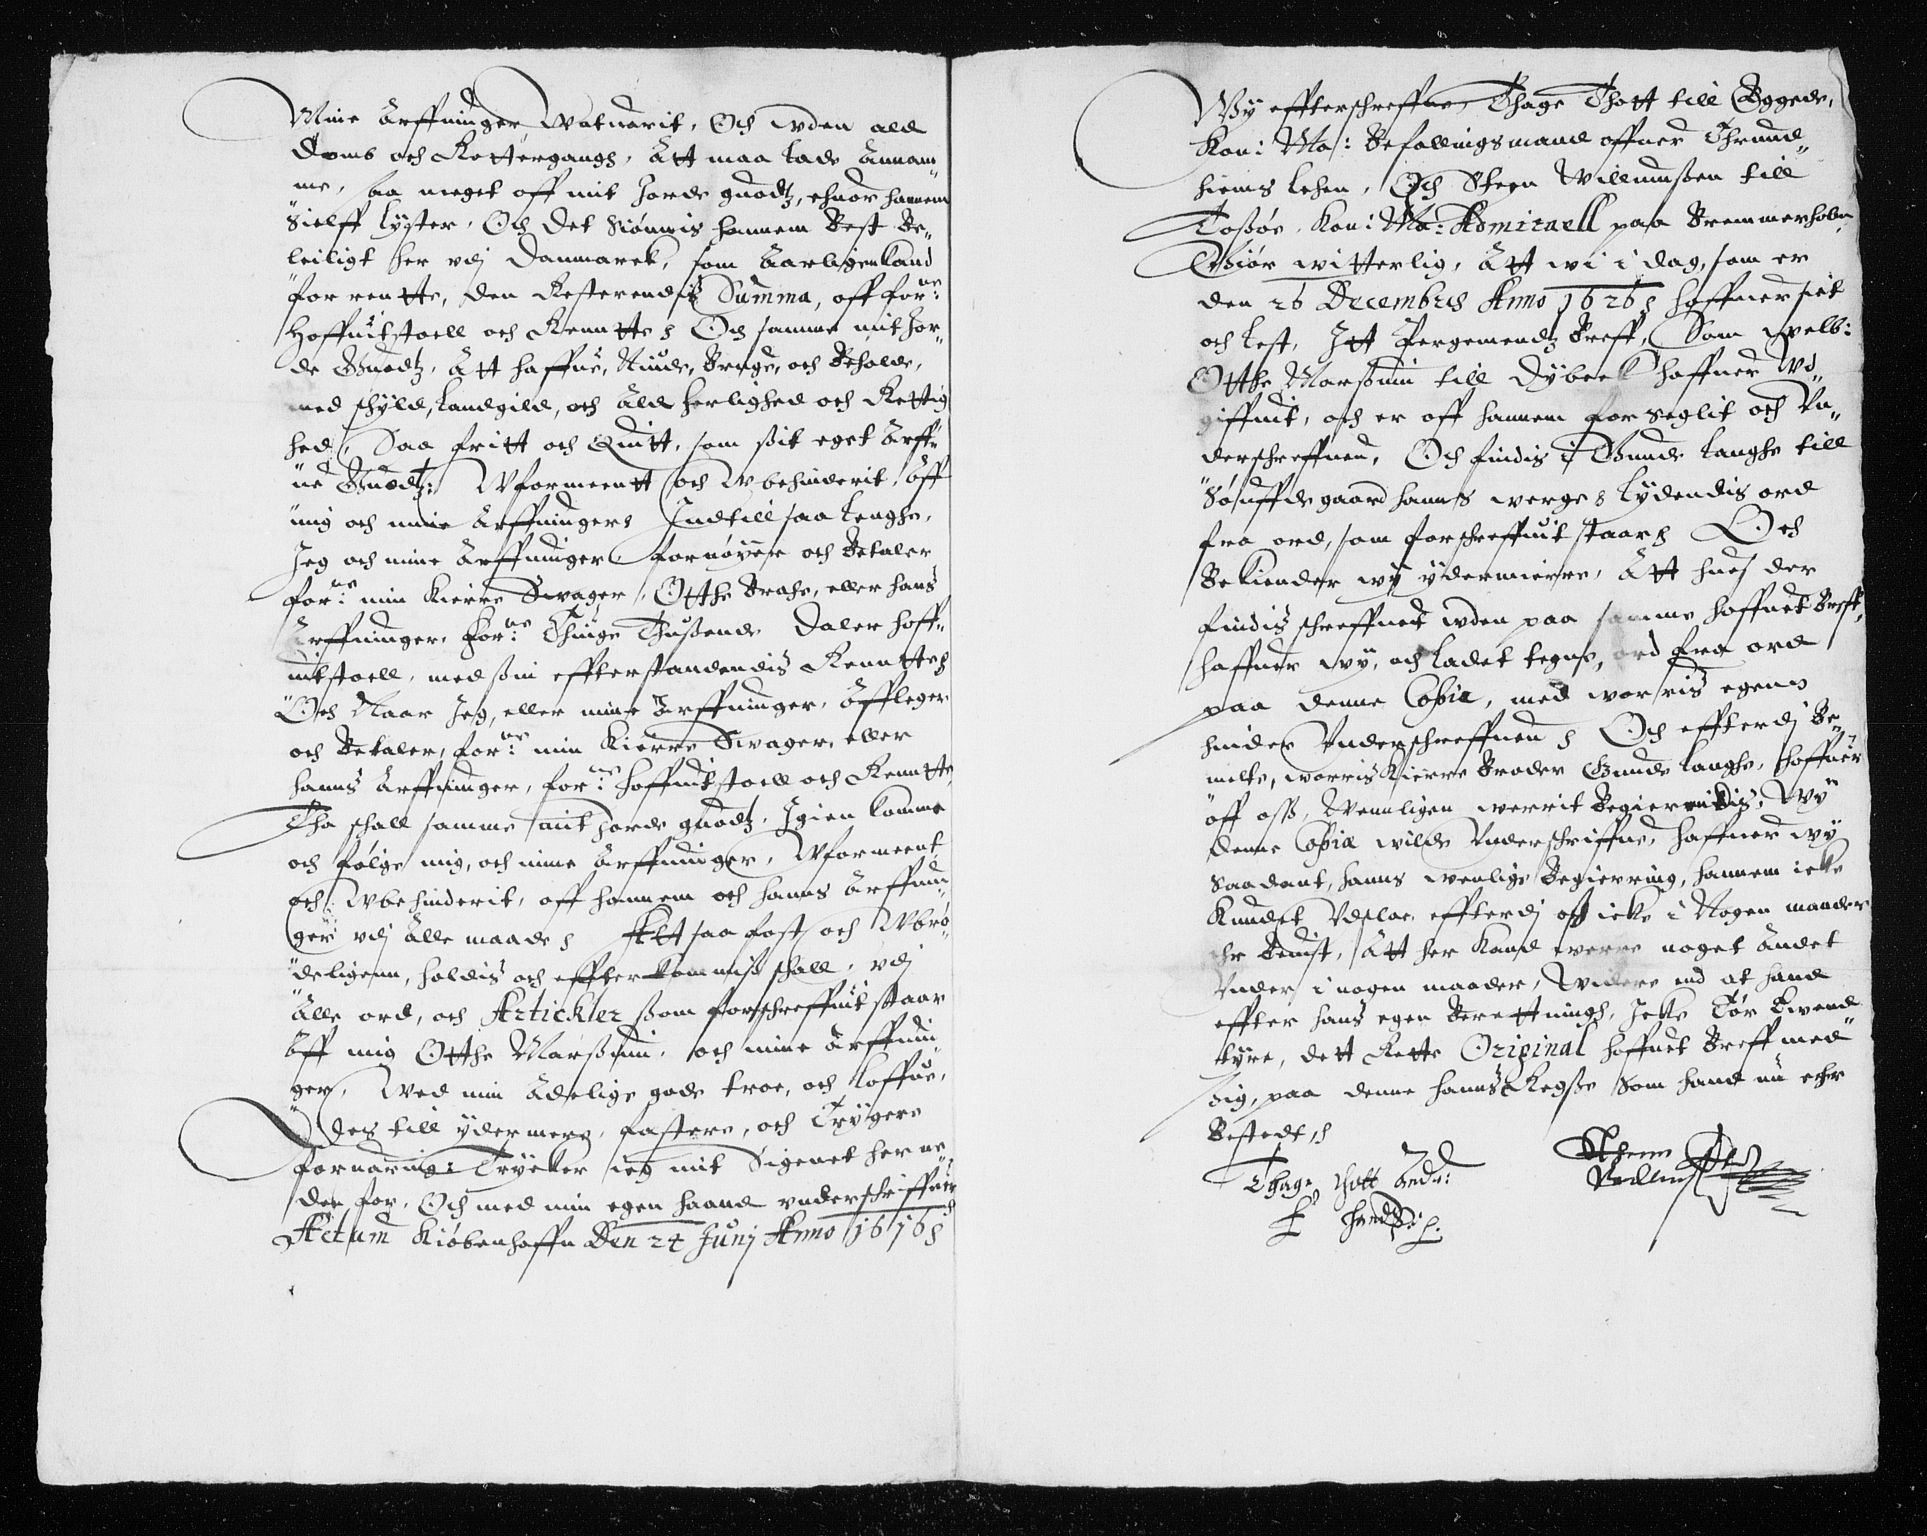 Mine Arffuinger watuarit, Och uden ald
Domb och Rettergangh, Att maa lade Annam¬
me, saa meget off mit Jorde guodtz, ehuor hannem
Sielff lyster, Och det Siønnis hannem Best Be¬
leiligt her vdj Danmarck, som Aarligen kand
for rentte, den Resterendis Summa, off forne:
Hoffuitstoell och Renntte Och samme mit Jor¬
de Guodtz, Att haffue, Niude, Bruge, och Beholde,
med schyld, landgild, och Ald herlighed och Rettig
hed, Saa fritt och Quitt, som sit eget Arff¬
ue Guodtz: Wformeentt och Wbehinderit, Aff
mig och mine Arffuinger Indtill saa lenghe,
Jeg och mine Arffuinger, fornøyer och Betaler
forne: min Kierre Swager, Otthe Brahe, eller hans
Arffuinger, forne: Thiuge Thusende Daler hoff¬
uitstoell, med sin effterstandendis Renntte
Och Naar Jeg, eller mine Arffuinger, Afflegger
och Betaler, forne: min Kierre Swager, eller
hanns Arffuinger, forne: hoffuitstoell och Renntte,
Tha schall samme mit Jorde guodtz, Igien komme
och følge mig, och mine Arffuinger, Wformeent
och Wbehinderit, aff hannem och hanns Arffuin¬
ger vdj Alle maade Att saa fast och Wbrø¬
deligenn, holdis och effterkommis schall, vdj
Alle ord, och Artickler som forschreffuit staar
Aff mig Otthe Marssuin, och mine Arffuin¬
ger, Wed min Adelige gode troe, och loffue,
Des till ydermere, fastere, och Trygere
foruaring: Trycker ieg mit Signet her ne¬
den for, Och med min egen haand vnderschriffuer
Actum Kiøbenhaffn Den 24 Junj Anno 1616
Wy effterschreffne Thage Thott till Eggede,
Kon: Ma: Befallingsmand offuer Thrund¬
hiems lehen, Och Steen Willumssen till
Tossøe, Kon: Ma: Admiraell paa Bremmerholm,
Giør witterlig, Att wi i dag, som er
den 26 Decembris Anno 1626 haffuer siet
och lest, Itt Pergemendtz Breff, Som welb:
Otthe Marssuin till Dybeck haffuer Vd¬
giffuit, och er aff hannem forseglit och Vn¬
derschreffuen, Och findis i Gunde Langhe till
Søuffdegaard hanns verge lydendis ord
fra ord, som forschreffuit staar Och
Bekiender wy ydermierre, Att hues der
findis schreffuet uden paa samme hoffuet Breff,
haffuer wy, och ladet tegne, ord fra ord
paa denne Copie, med worris egenn
hender Vnderschreffuen Och effterdj Be¬
melte, worris Kierre Broder Gunde Langhe, haffuer
aff oss, Wennligen werrit Begierendis, Wy
denne Copie wilde Vnderschriffue, haffuer wy
Saadant, hanns wenlige Begierring, hannem icke
Kundet Vdslae, effterdj oss icke i Nogen maader
ehr Beuist, Att her kand werre noget Andet
Vnder i nogen maader, Widere end at hand
effter hans egen Berettningh, Icke Tør Euend
tyre, dett Rette Original hoffuet Breff med
sig, paa denne hanns Regsse Som hand nu echr
Bestedt,
Thage Thott Andr:
E haand
Stheen
Vellum